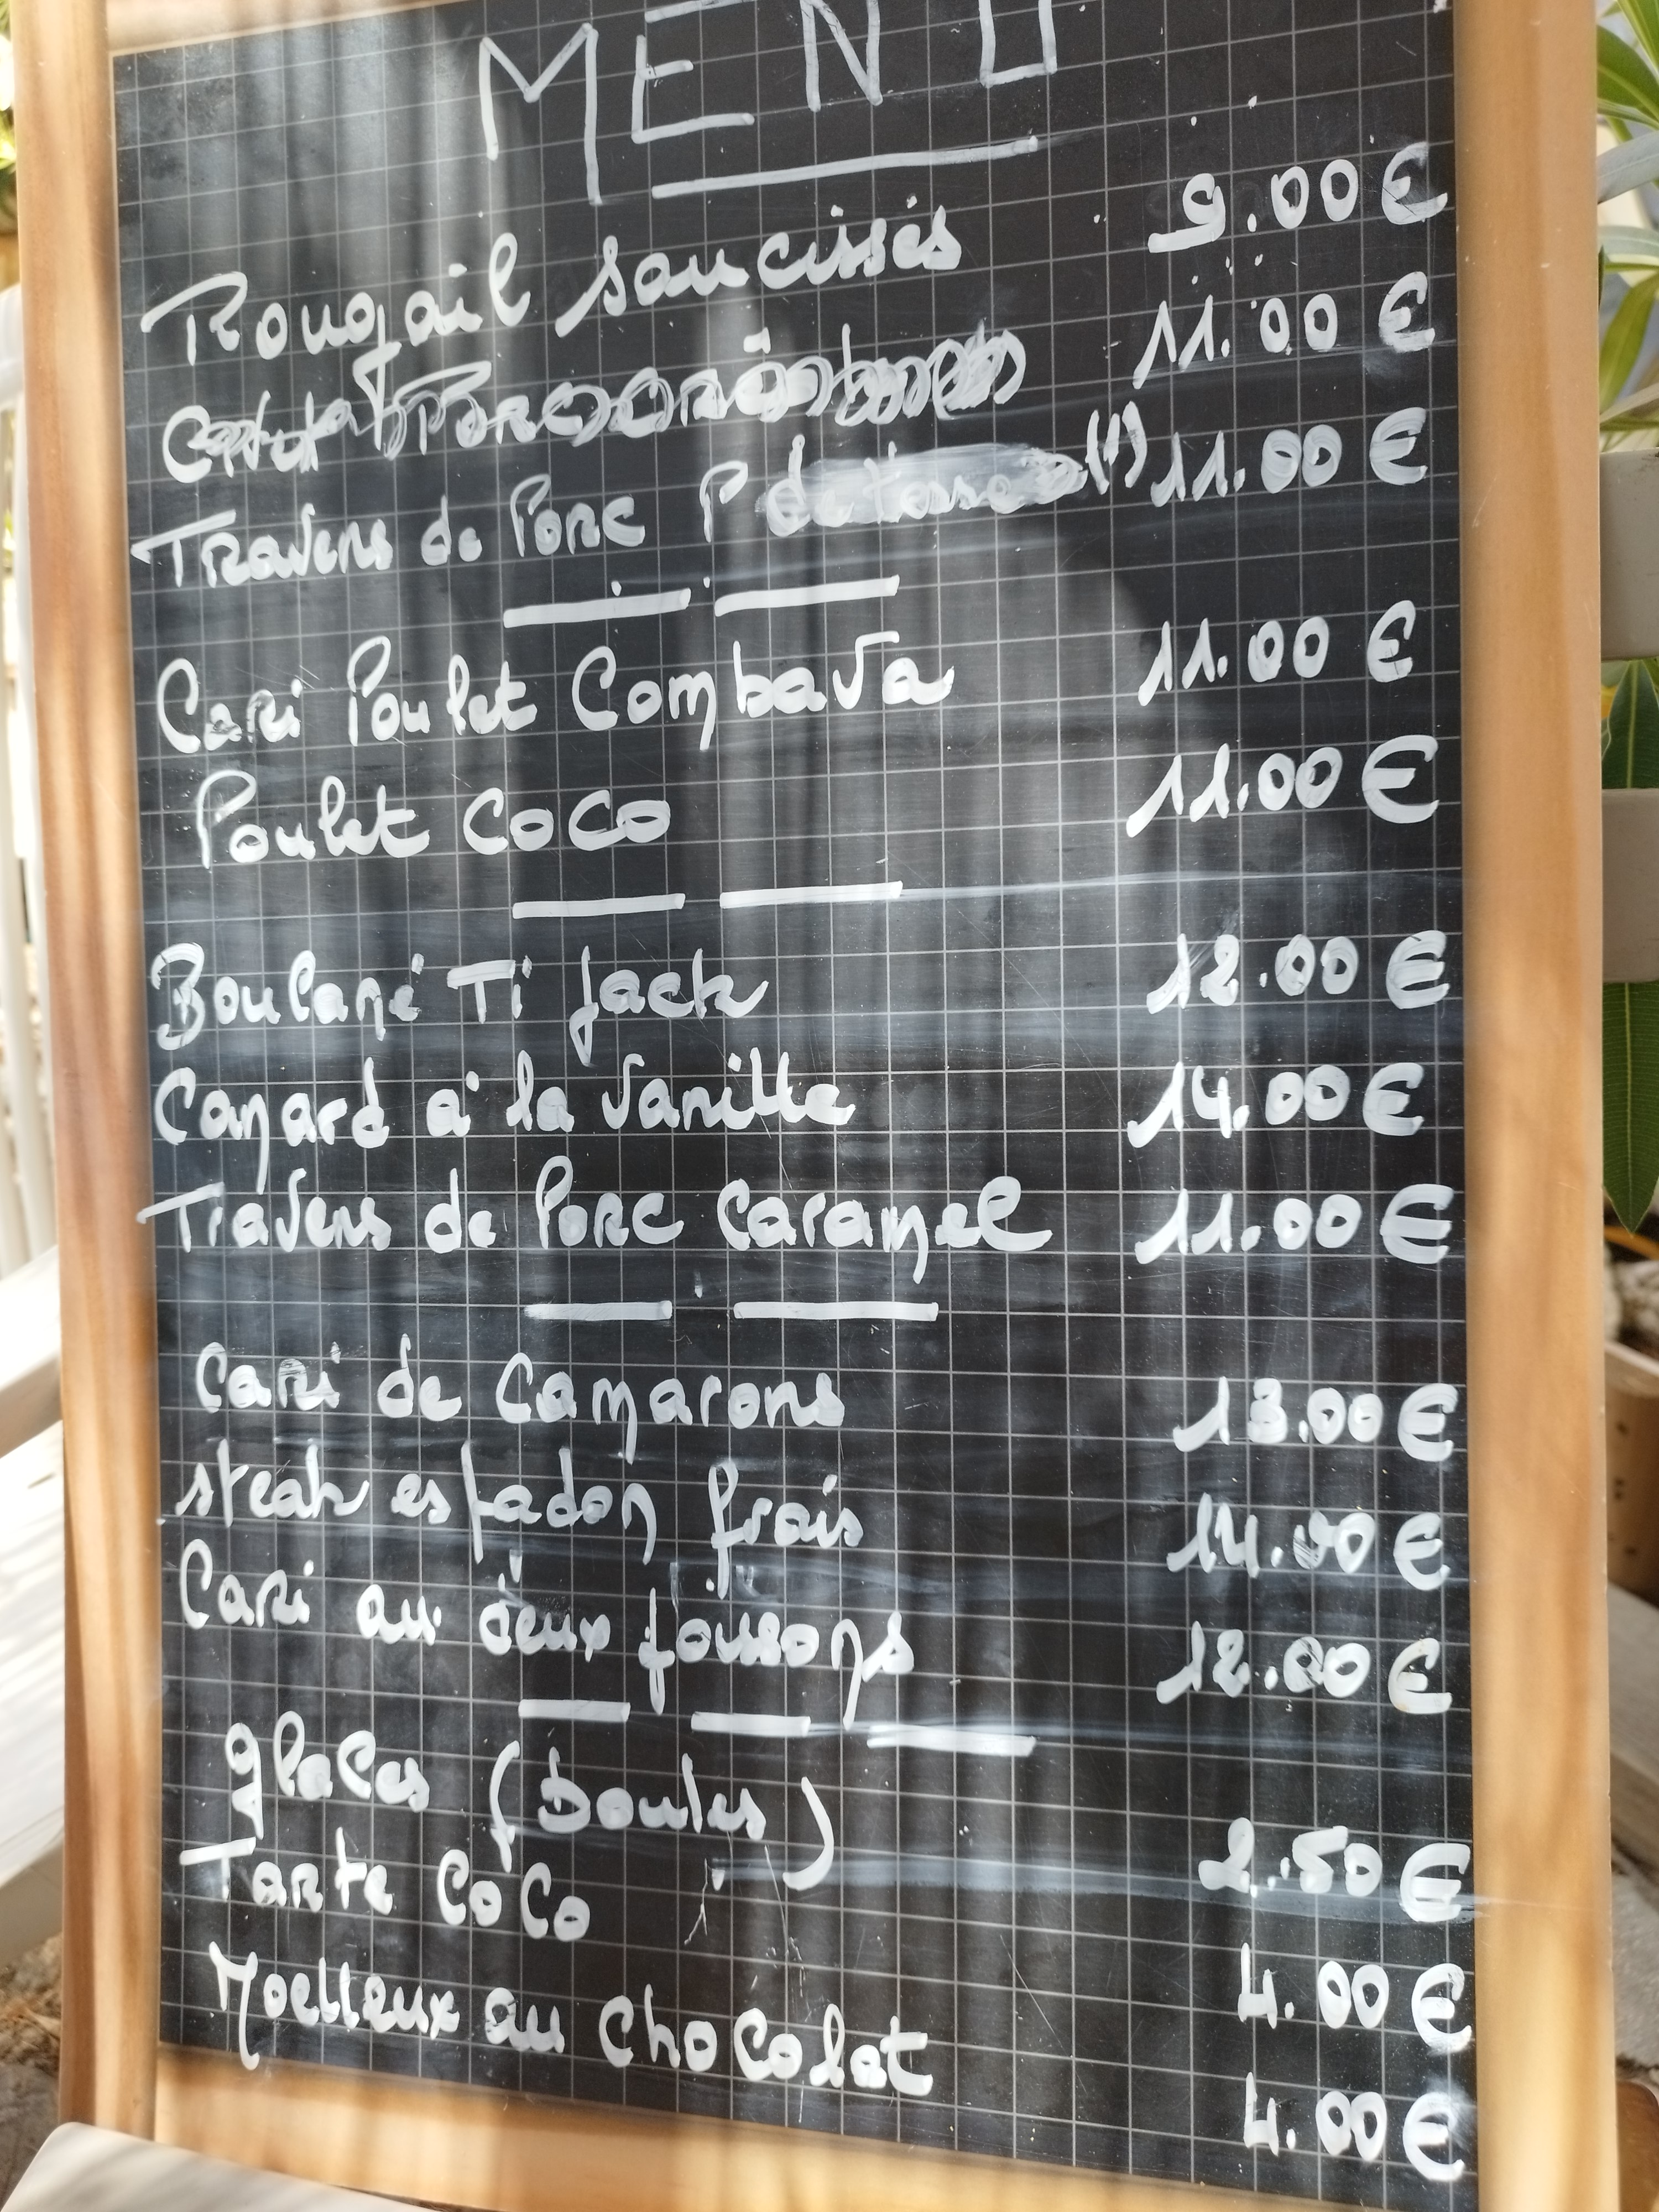 MENU
Rougail saucisses 9.00 €
11.00 €
Travers de Porc P de terre (1) 11.00 €
Cari Poulet Combava 11.00 €
Poulet Coco 11.00 €
Boulané Ti Jack 12.00 €
Canard à la Vanille 14.00 €
Travers de Porc Caramel 11.00 €
Cari de Camarons 13.00 €
steak espadon frais 14.00 €
Cari au deux poissons 12.00 €
glaces (boules) 2.50 €
Tarte Coco 4.00 €
Moelleux au chocolat 4.00 €